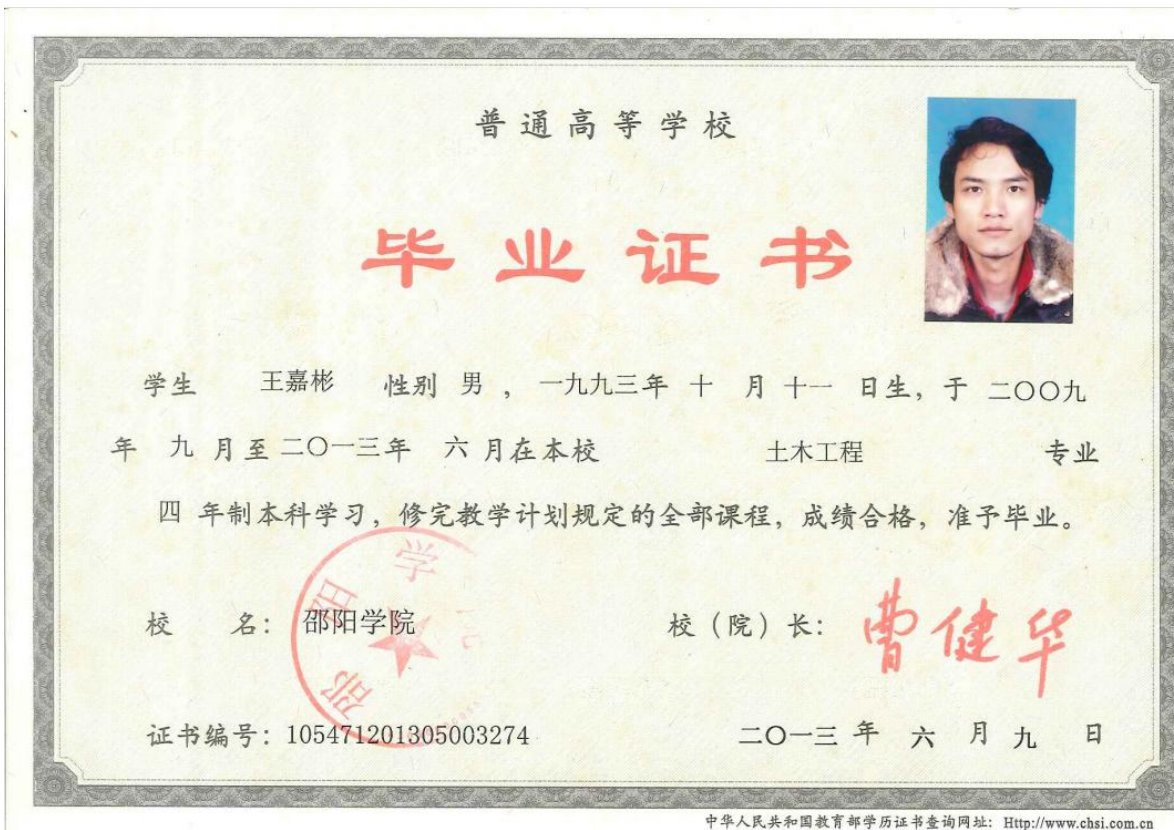 普通高等学校
毕业证书
学生 王嘉彬 性别 男 ，一九九三年 十 月 十一 日生，于 二〇〇九
年 九 月至二〇一三年 六 月在本校 土木工程 专业
四 年制本科学习，修完教学计划规定的全部课程，成绩合格，准予毕业。
校 名： 邵阳学院 校（院）长： 曹健华
邵阳学
证书编号：105471201305003274 二〇一三 年 六 月 九 日
中华人民共和国教育部学历证书查询网址： Http://www.chsi.com.cn